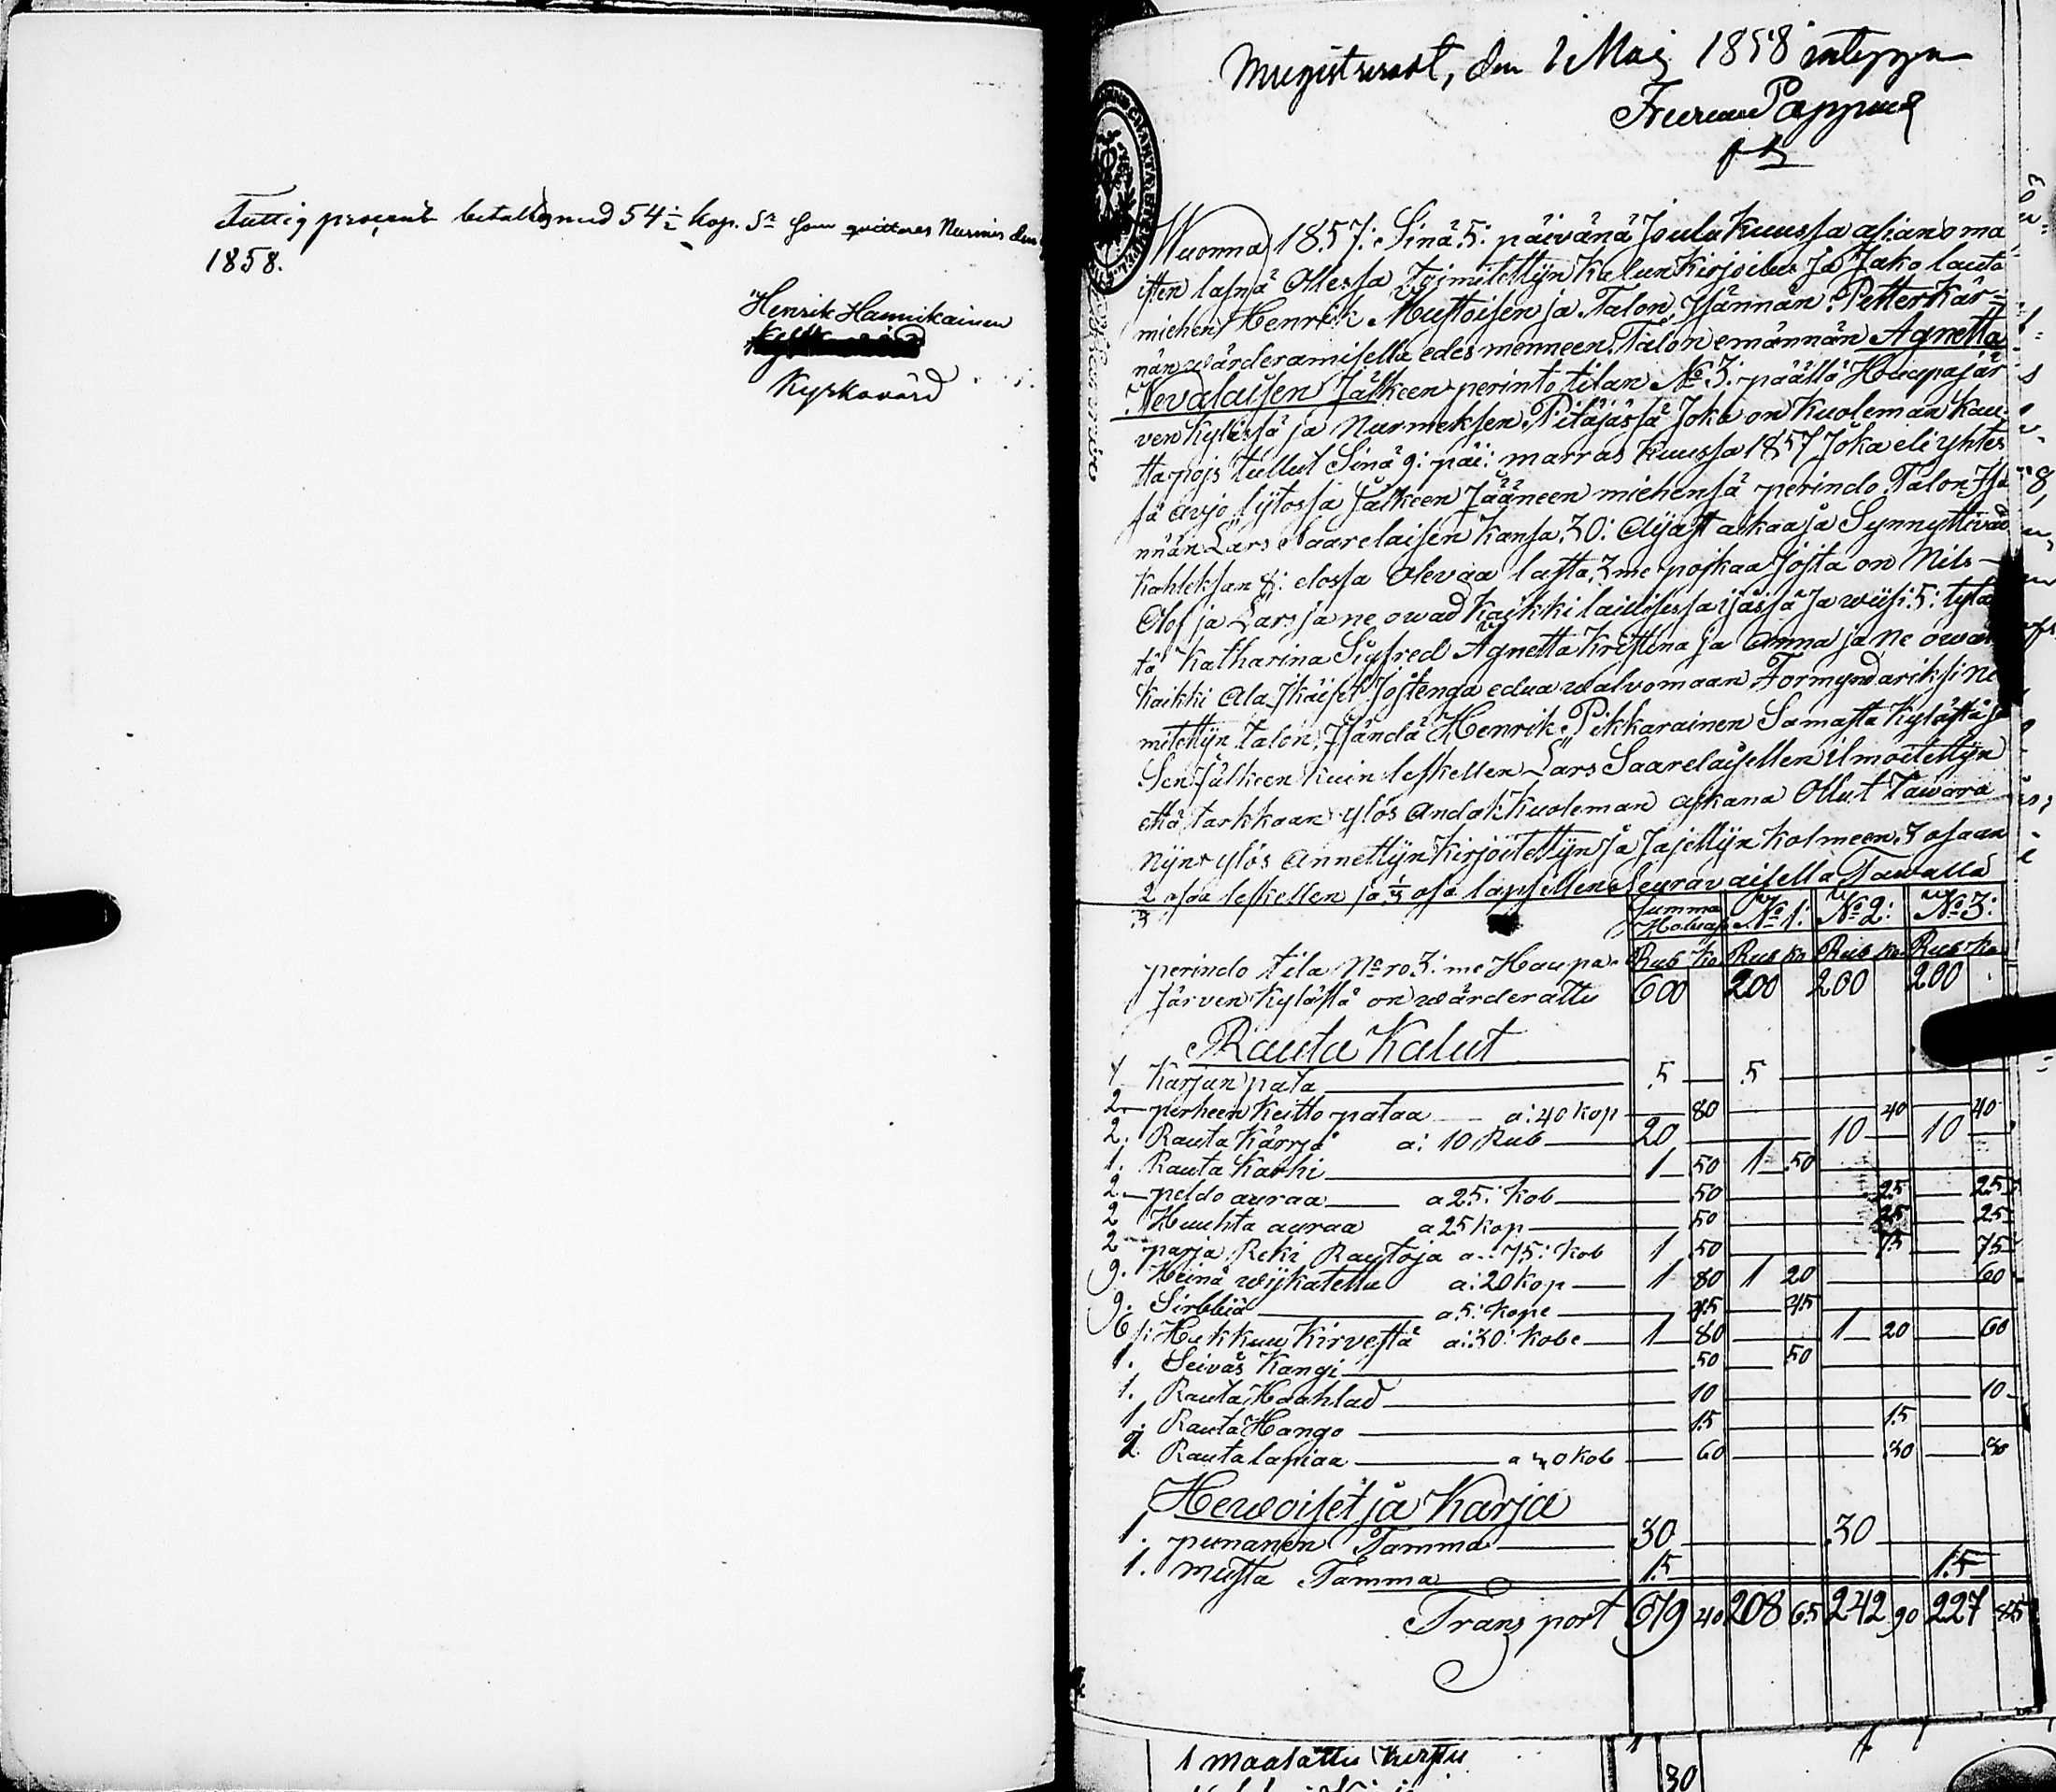 Fattig procent betaltes med 54 1/2 kop. Sr som quitteres Nurmis den
1858.
Henrik Hannikainen
Kyrkovärd
Magistraat, den 1 Maij 1858
Wuonna 1857: Sinä 5: päivänä Joulu Kuussa asianoma
isten läsnä Ollessa toimitettijn Kalun Kirjoitus Ja Jako lauta
miehen Henrik Mustoisen ja Talon Isännän Petter Kär-
nän wärderamisella edes menneen Talon emännän Agnetta
Nevalaisen Jälkeen perinto tilan No 3: päällä Haapajär
ven Kylässä ja Nurmeksen Pitäjässä Joka on Kuoleman Kau-
tta pojs tullut Sinä 9: päi: marras Kuussa 1857 Joka eli yhtes
sä avjo sÿtossa Jälkeen Jääneen miehensä perindo Talon Isä
nnän Lars Saarelaisen Kansa 30: Ajast aikaa ja Synnyttiväd
Kahleksan 8: elossa Olevaa lasta 3me pojkaa Josta on Nils
Olof ja Lars ja ne owad Kaikki laillisessa ijässä Ja wiisi 5: tytä
tä Katharina Sigfred Agnetta Kristina ja Anna ja ne owad
Kaikki Ala Ikäiset Jostenga edua walvomaan Formyndariksi ni
mitettijn talon Isändä Henrik Pikkarainen Samasta Kylästä ja
Sen Jälkeen kuin leskellen Lars Saarelaisellen ilmoitettijn
että tarkkaan ylös andak Kuoleman ajkana Ollut Tawara
Nijn ylös Annettijn Kirjoitettijn Ja Jajettijn Kolmeen 3 osaan
2/3 osaa leskellen ja 1/3 osa lapsillen Seuravaisella Tawalla
Summa No 1: No 2: No 3:
Rub Ko Rub Ko Rub Ko Rub Ko
perindo tila Nro 3: me Haapa-
järven Kylässä on wärderattu 600 200 200 200
Rauta Kalut
1 Karjan pata 5 5
2 perheen Keitto pataa a: 40 kop 80 40 40
2. Rauta Kärrjä a: 10 Rub 20 10 10
1. Rauta Karhi 1 50 1 50
2 peldo auraa a 25: Kob 50 25 25
2 Huuhta auraa a 25 Kop 50 25 25
2 parja Reki Rautoja a 75: Kob 1 50 75 75
9. Heinä wijkatettu a: 20 kop 1 80 1 20 60
9. Sirbbiä a 5: Kope 45 45
6 si Hukkuu Kirvestä a: 30: Kobe 1 80 1 20 60
1. Seiväs Kangi 50 50
1. Rauta Haahlad 10 10
1. Rauta Hango 15 15
2 Rauta lapiaa a 30 Kob 60 30 30
Hewoiset ja Karja
1. punanen Tamma 30 30
1. musta Tamma 15 15
Transport 679 40 208 65 242 90 227 85
1 maalattu
30